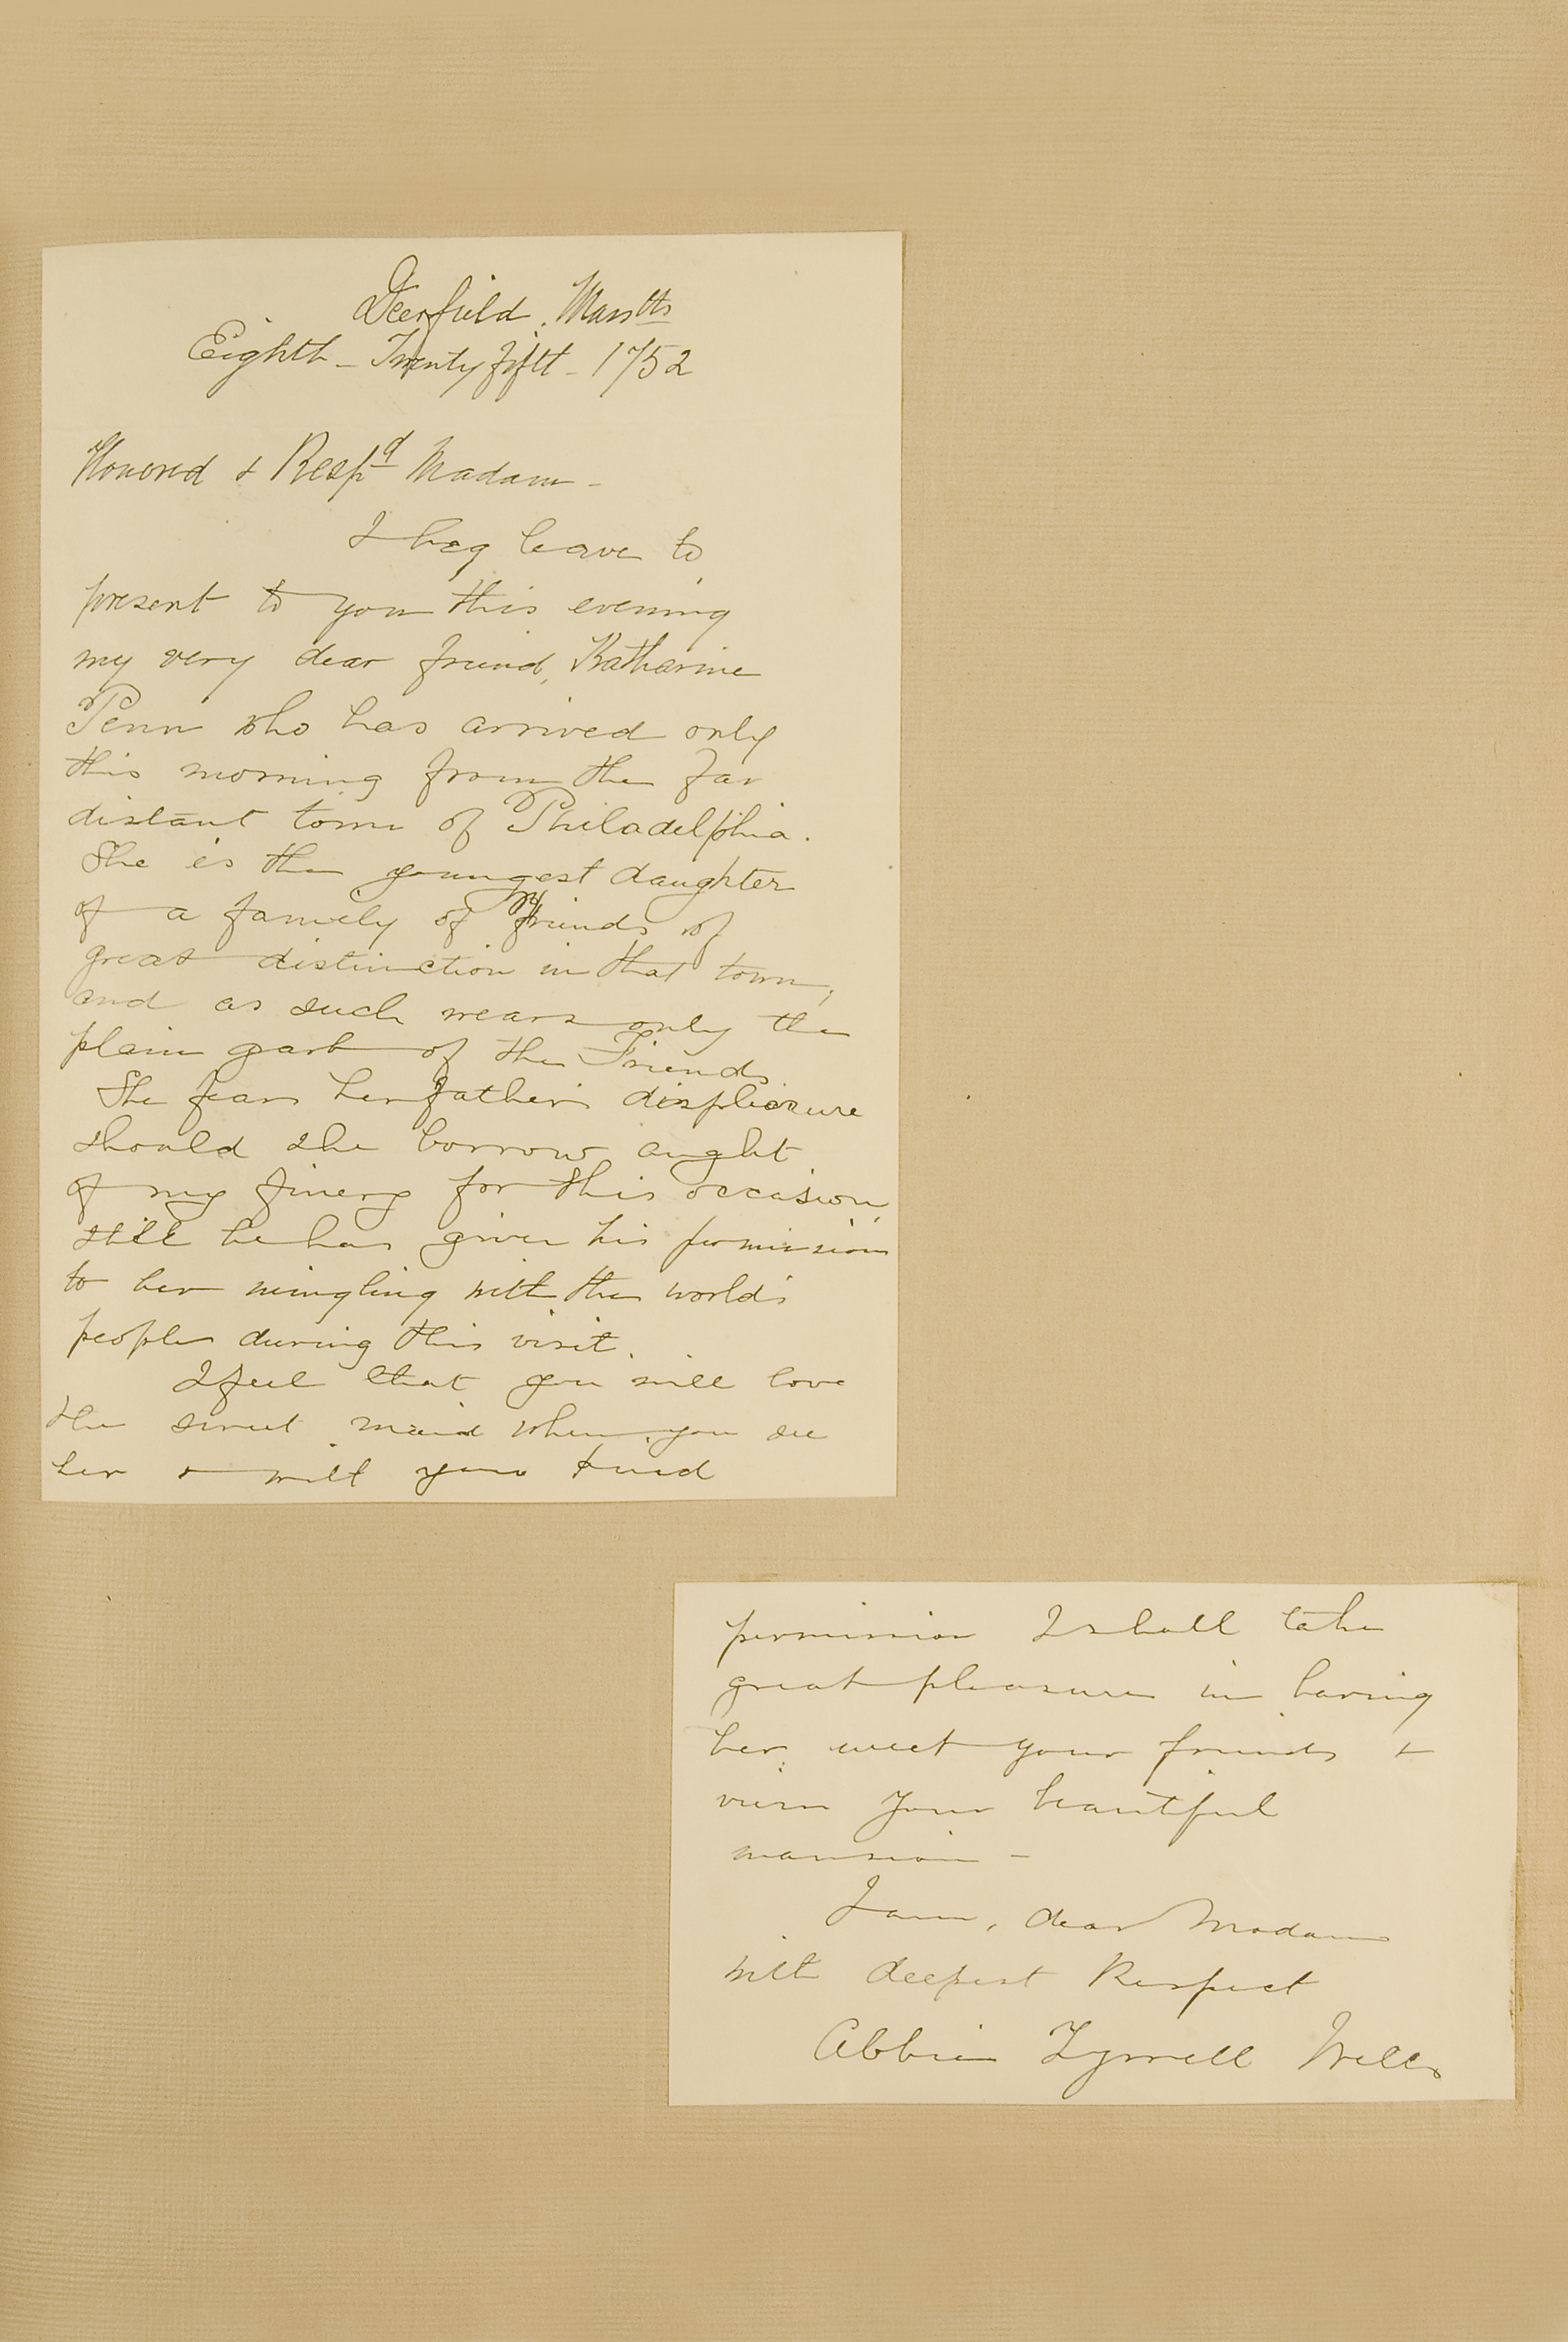 Deerfield. Masstts
Eighth - Twenty fifth - 1752
Honored & Respd Madam -
I beg leave to
present to you this evening
my very dear friend, Katharine
Penn who has arrived only
this morning from the far
distant town of Philadelphia.
She is the youngest daughter
of a family of Friends of
great distinction in that town,
and as such wears only the
plain garb of the Friends
She fears her father's displeasure
should she borrow aught
of my finery for this occasion,
still he has given his permission
to her mingling with the world's
people during this visit.
I feel that you will love
the sweet maid when you see
her & with your kind
permission I shall take
great pleasure in having
her meet your friends &
view your beautiful
mansion -
I am, dear Madam
with deepest Respect
Abbie Tyrrell Wells